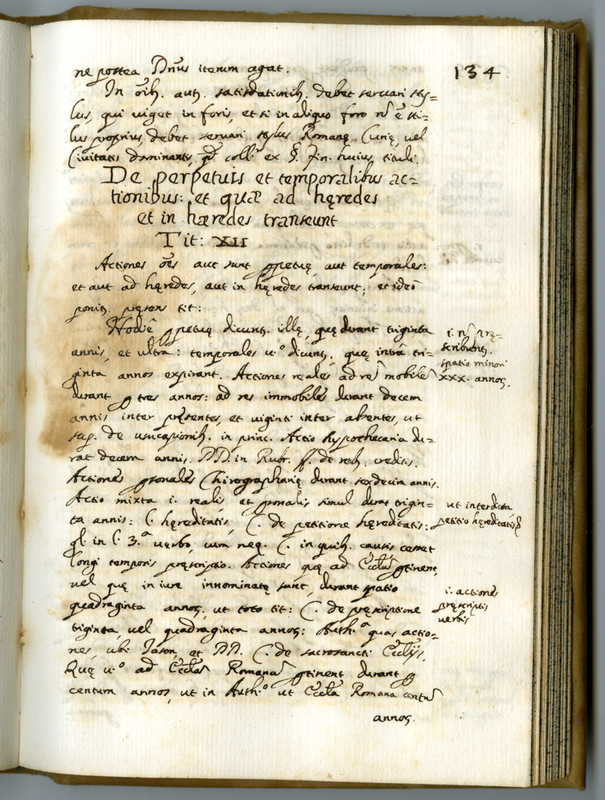 134
ne postea Dnus iterum agat.
In oib. aut. satisdationib. debet servari sty=
lus, qui viget in foris, et si in aliquo foro n e sti=
lus proprius, debet servari stylus Romanę Curię, vel
Civitatis dominantis, coll. ex §. fin. huius tituli.
De perpetuis et temporalibus ac=
tionibus: et quæ ad hęredes
et in hæredes transeunt
Tit: XII
Actiones oes aut sunt ppetuę, aut temporales:
et aut ad hęredes, aut in hęredes transeunt; et ideo
ponit. pręsens tit:
Hodie ppetuę dicunt. illę, quę durant triginta
annis, et ultra: temporales v.o dicunt. quę intra tri=
ginta annos expirant. Actiones reales ad rē mobilē
durant p tres annos: ad res immobiles durant decem
annis inter pręsentes, et viginti inter absentes, ut
sup. de usucapionib. in princ. Actio hypothecaria du=
rat decem annis. DD. in Rubr. ff. de reb. creditis.
Actiones psonales Chirographarię durant sexdecim annis.
Actio mixta i. realis et psonalis simul durat trigin=
ta annis: l. hęreditatis, C. de petitione hęreditatis:
gl. in l. 3.a verbo, cum neq. C. in quib. causis cesset
longi temporis pręscriptio. Actiones quę ad Ecclas ptinent,
vel quę in iure innominatę sunt, durant spatio
quadraginta annos, ut toto tit: C. de pręscriptione
triginta, vel quadraginta annos: Auth.a quas actio=
nes, ubi Jason, et DD. C. de sacrosanct. Ecclijs.
Quę v.o ad Ecclā Romanā ptinent durant p
centum annos, ut in Auth.o ut Eccla Romana centū
annos.
i. n pre=
scribunt.
spatio minori
XXX. annos.
ut interdicta
petitio hęreditatis
i. actiones
pręscriptis
verbis